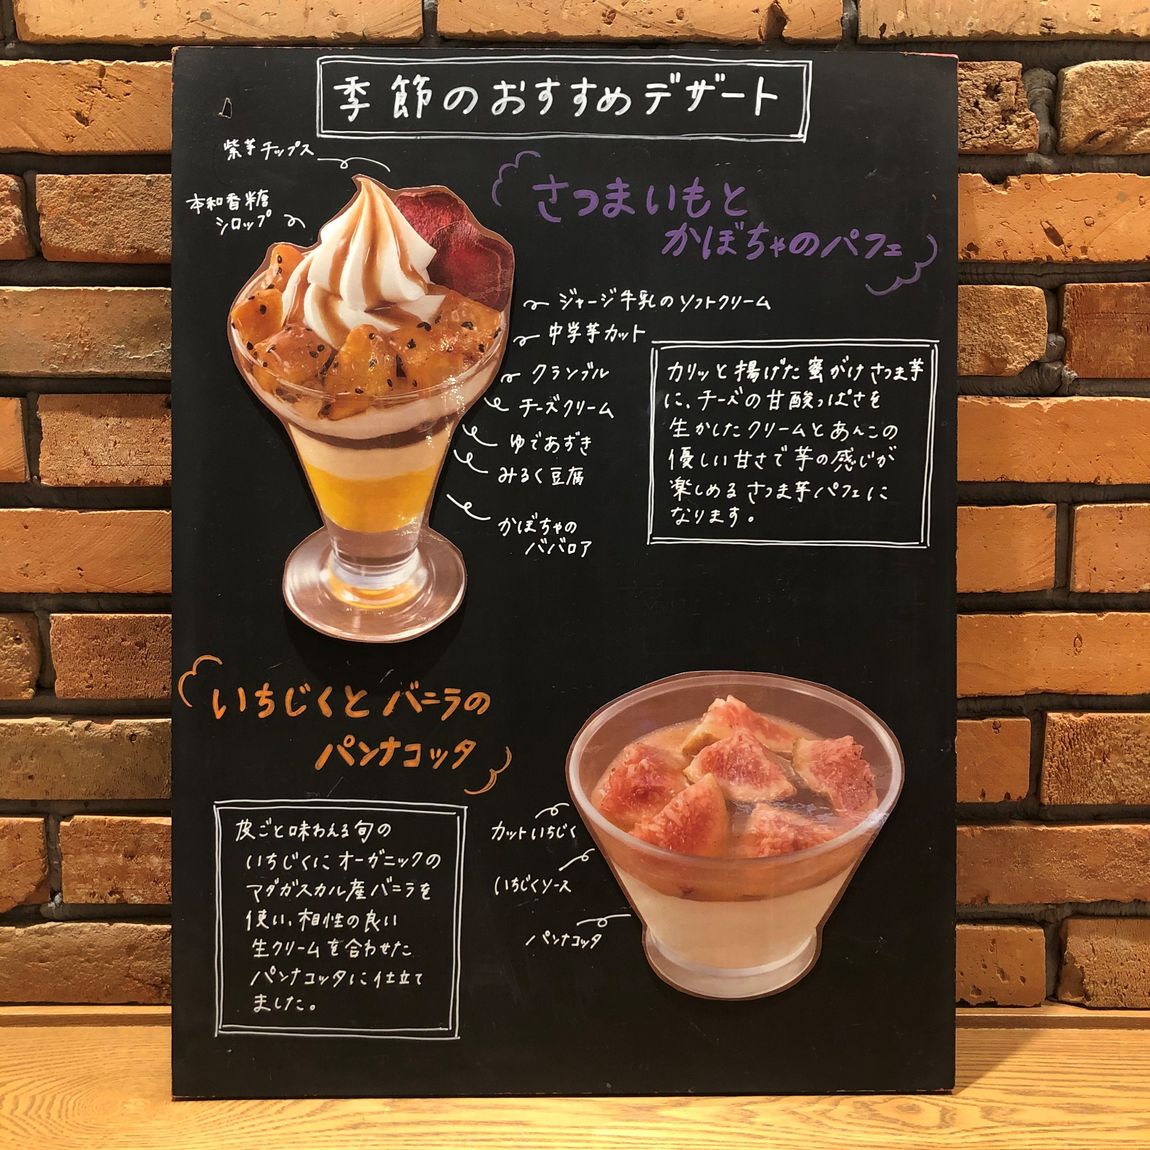 季節のおすすめデザート
紫芋チップス
本和香糖
シロップ
さつまいもと
かぼちゃのパフェ
ジャージ牛乳のソフトクリーム
中学芋カット
クランブル
チーズクリーム
ゆであずき
みるく豆腐
かぼちゃの
ババロア
カリッと揚げた蜜がけさつま芋
に、チーズの甘酸っぱさを
生かしたクリームとあんこの
優しい甘さで芋の感じが
楽しめるさつま芋パフェに
なります。
いちじくとバニラの
パンナコッタ
皮ごと味わえる旬の
いちじくにオーガニックの
マダガスカル産バニラを
使い、相性の良い
生クリームを合わせた
パンナコッタに仕立て
ました。
カットいちじく
いちじくソース
パンナコッタ